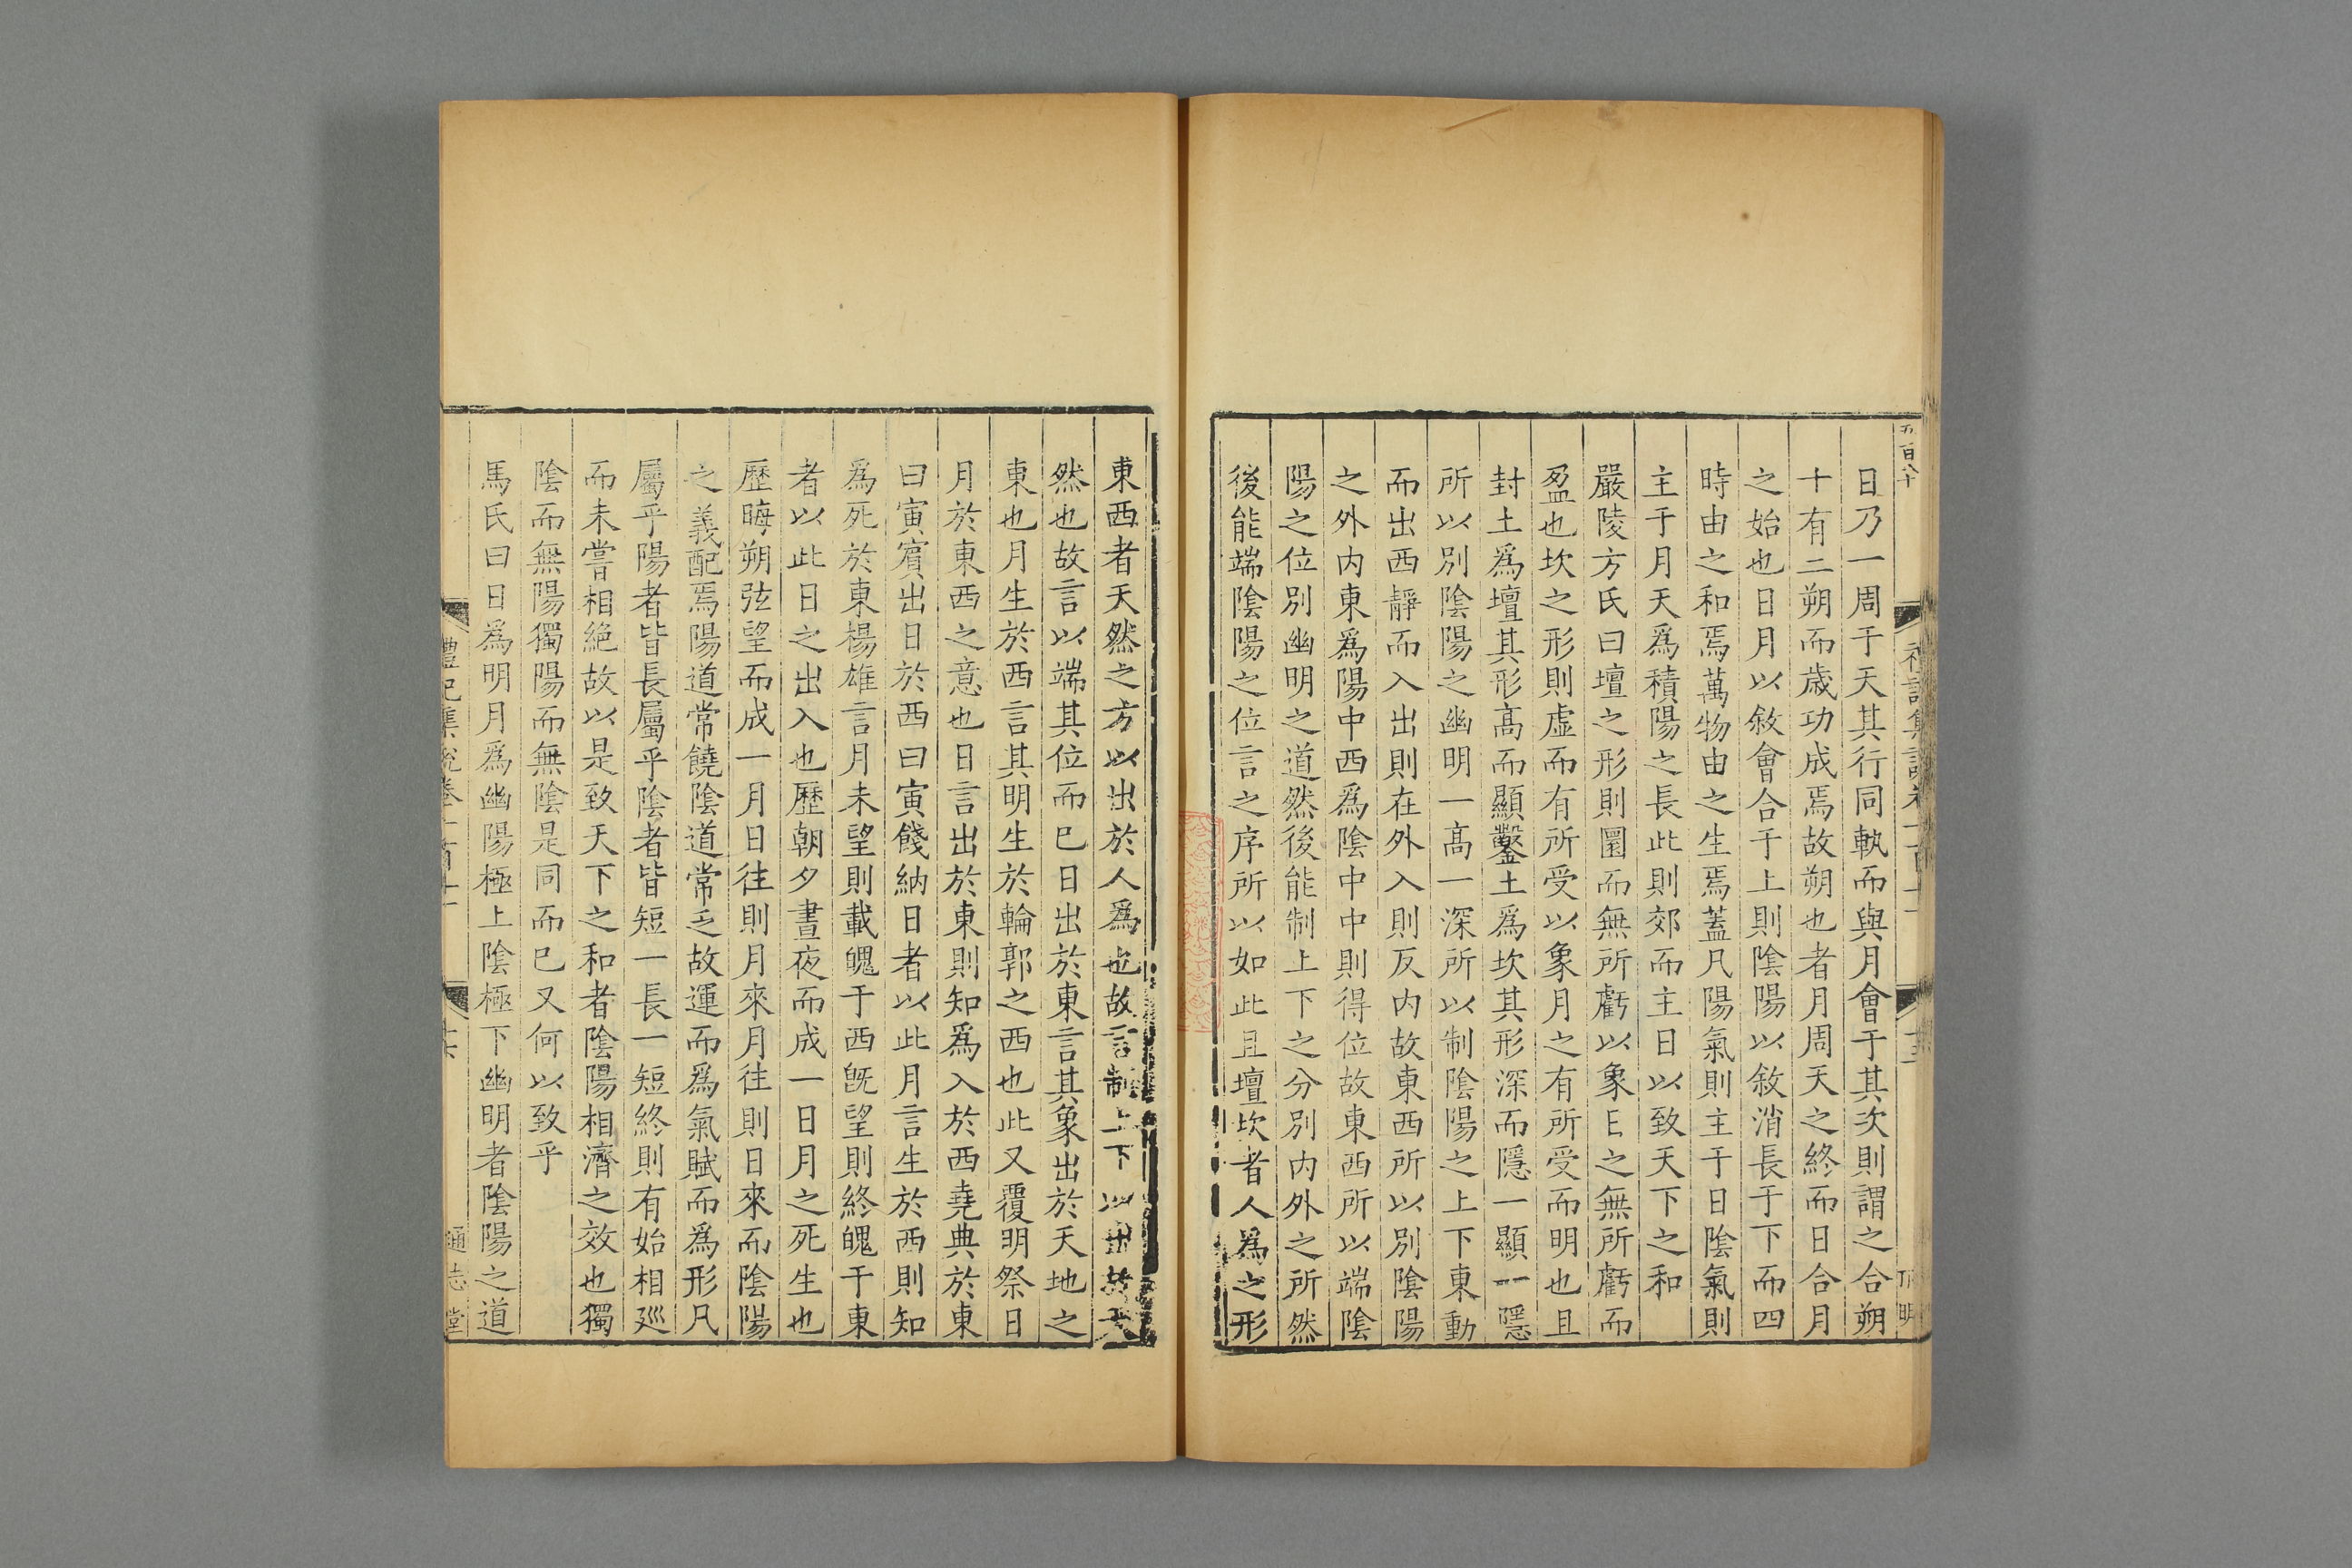 日乃一周于天其行同軌而與月會于其次則謂之合朔
十有二朔而歳功成焉故朔也者月周天之終而日合月
之始也日月以敘會合于上則陰陽以敘消長于下而四
時由之和焉萬物由之生焉蓋凡陽氣則主于日陰氣則
主于月天爲積陽之長此則郊而主日以致天下之和
嚴陵方氏曰壇之形則圜而無所虧以象日之無所虧而
盈也坎之形則虛而有所受以象月之有所受而明也且
封土爲壇其形髙而顯鑿土爲坎其形深而隱一顯一隱
所以別陰陽之幽明一髙一深所以制陰陽之上下東動
而出西靜而入出則在外入則反内故東西所以別陰陽
之外内東爲陽中西爲陰中中則得位故東西所以端陰
陽之位別幽明之道然後能制上下之分別内外之所然
後能端陰陽之位言之序所以如此且壇坎者人爲之形
東西者天然之方以出於人爲也故言制上下以出於天
然也故言以端其位而已日出於東言其象出於天地之
東也月生於西言其明生於輪郭之西也此又覆明祭日
月於東西之意也日言出於東則知爲入於西堯典於東
曰寅賓出日於西曰寅餞納日者以此月言生於西則知
爲死於東楊雄言月未望則載魄于西旣望則終魄于東
者以此日之出入也歷朝夕晝夜而成一日月之死生也
歷晦朔弦望而成一月日往則月來月往則日來而陰陽
之義配焉陽道常饒陰道常乏故運而爲氣賦而爲形凡
屬乎陽者皆長屬乎陰者皆短一長一短終則有始相廵
而未嘗相絶故以是致天下之和者陰陽相濟之效也獨
陰而無陽獨陽而無陰是同而已又何以致乎
馬氏曰日爲明月爲幽陽極上陰極下幽明者陰陽之道
禮記集說卷一百十一
通志堂